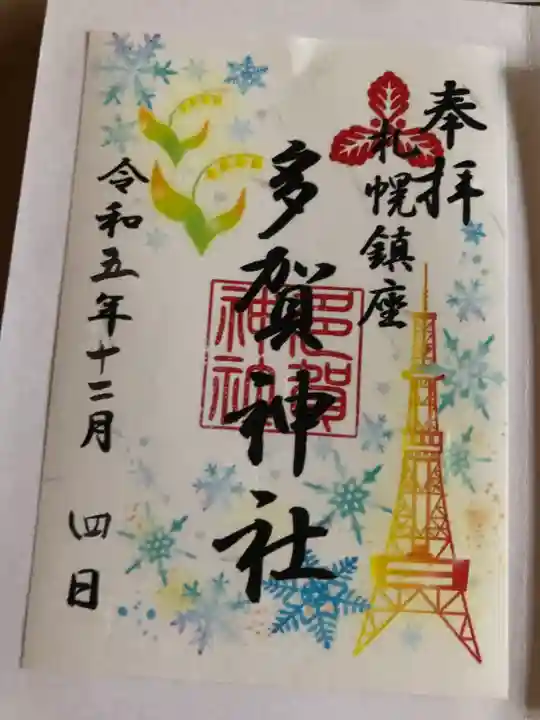 奉拝
札幌鎮座
多賀神社
多賀
神社
令和五年十二月 四日